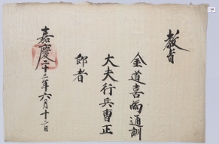 敎旨
金道喜爲通訓
大夫行兵曹正
郎者
嘉慶二十二年六月十二日